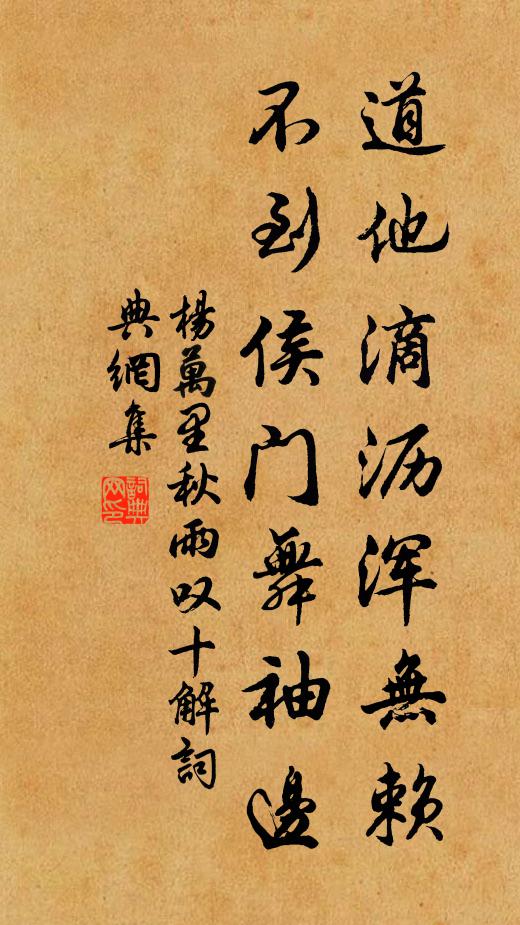 道他滴沥浑無賴
不到侯门舞袖邊
楊萬里秋雨叹十解詞
典網集
詞典网印